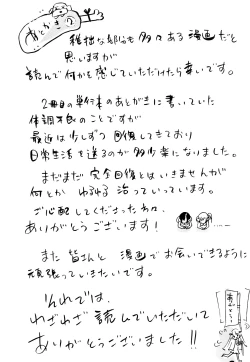 あとがき
稚拙な部分も多々ある漫画だと
思いますが
読んで何かを感じていただけたら幸いです。
2冊目の単行本のあとがきに書いていた
体調不良のことですが
最近は少しずつ回復してきており
日常生活を送るのが多少楽になりました。
まだまだ完全回復とはいきませんが
何とかゆるゆる治っていっています。
ご心配してくださった方々、
ありがとうございます!
また皆さんと漫画でお会いできるように
頑張っていきたいです。
それでは、
わざわざ読んでいただいて
ありがとうございました!!